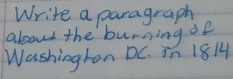 Write a paragraph
about the burning of
Washington DC. in 1814